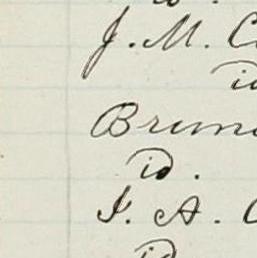 J. M. C
id
Brun
id.
J. A. C
id